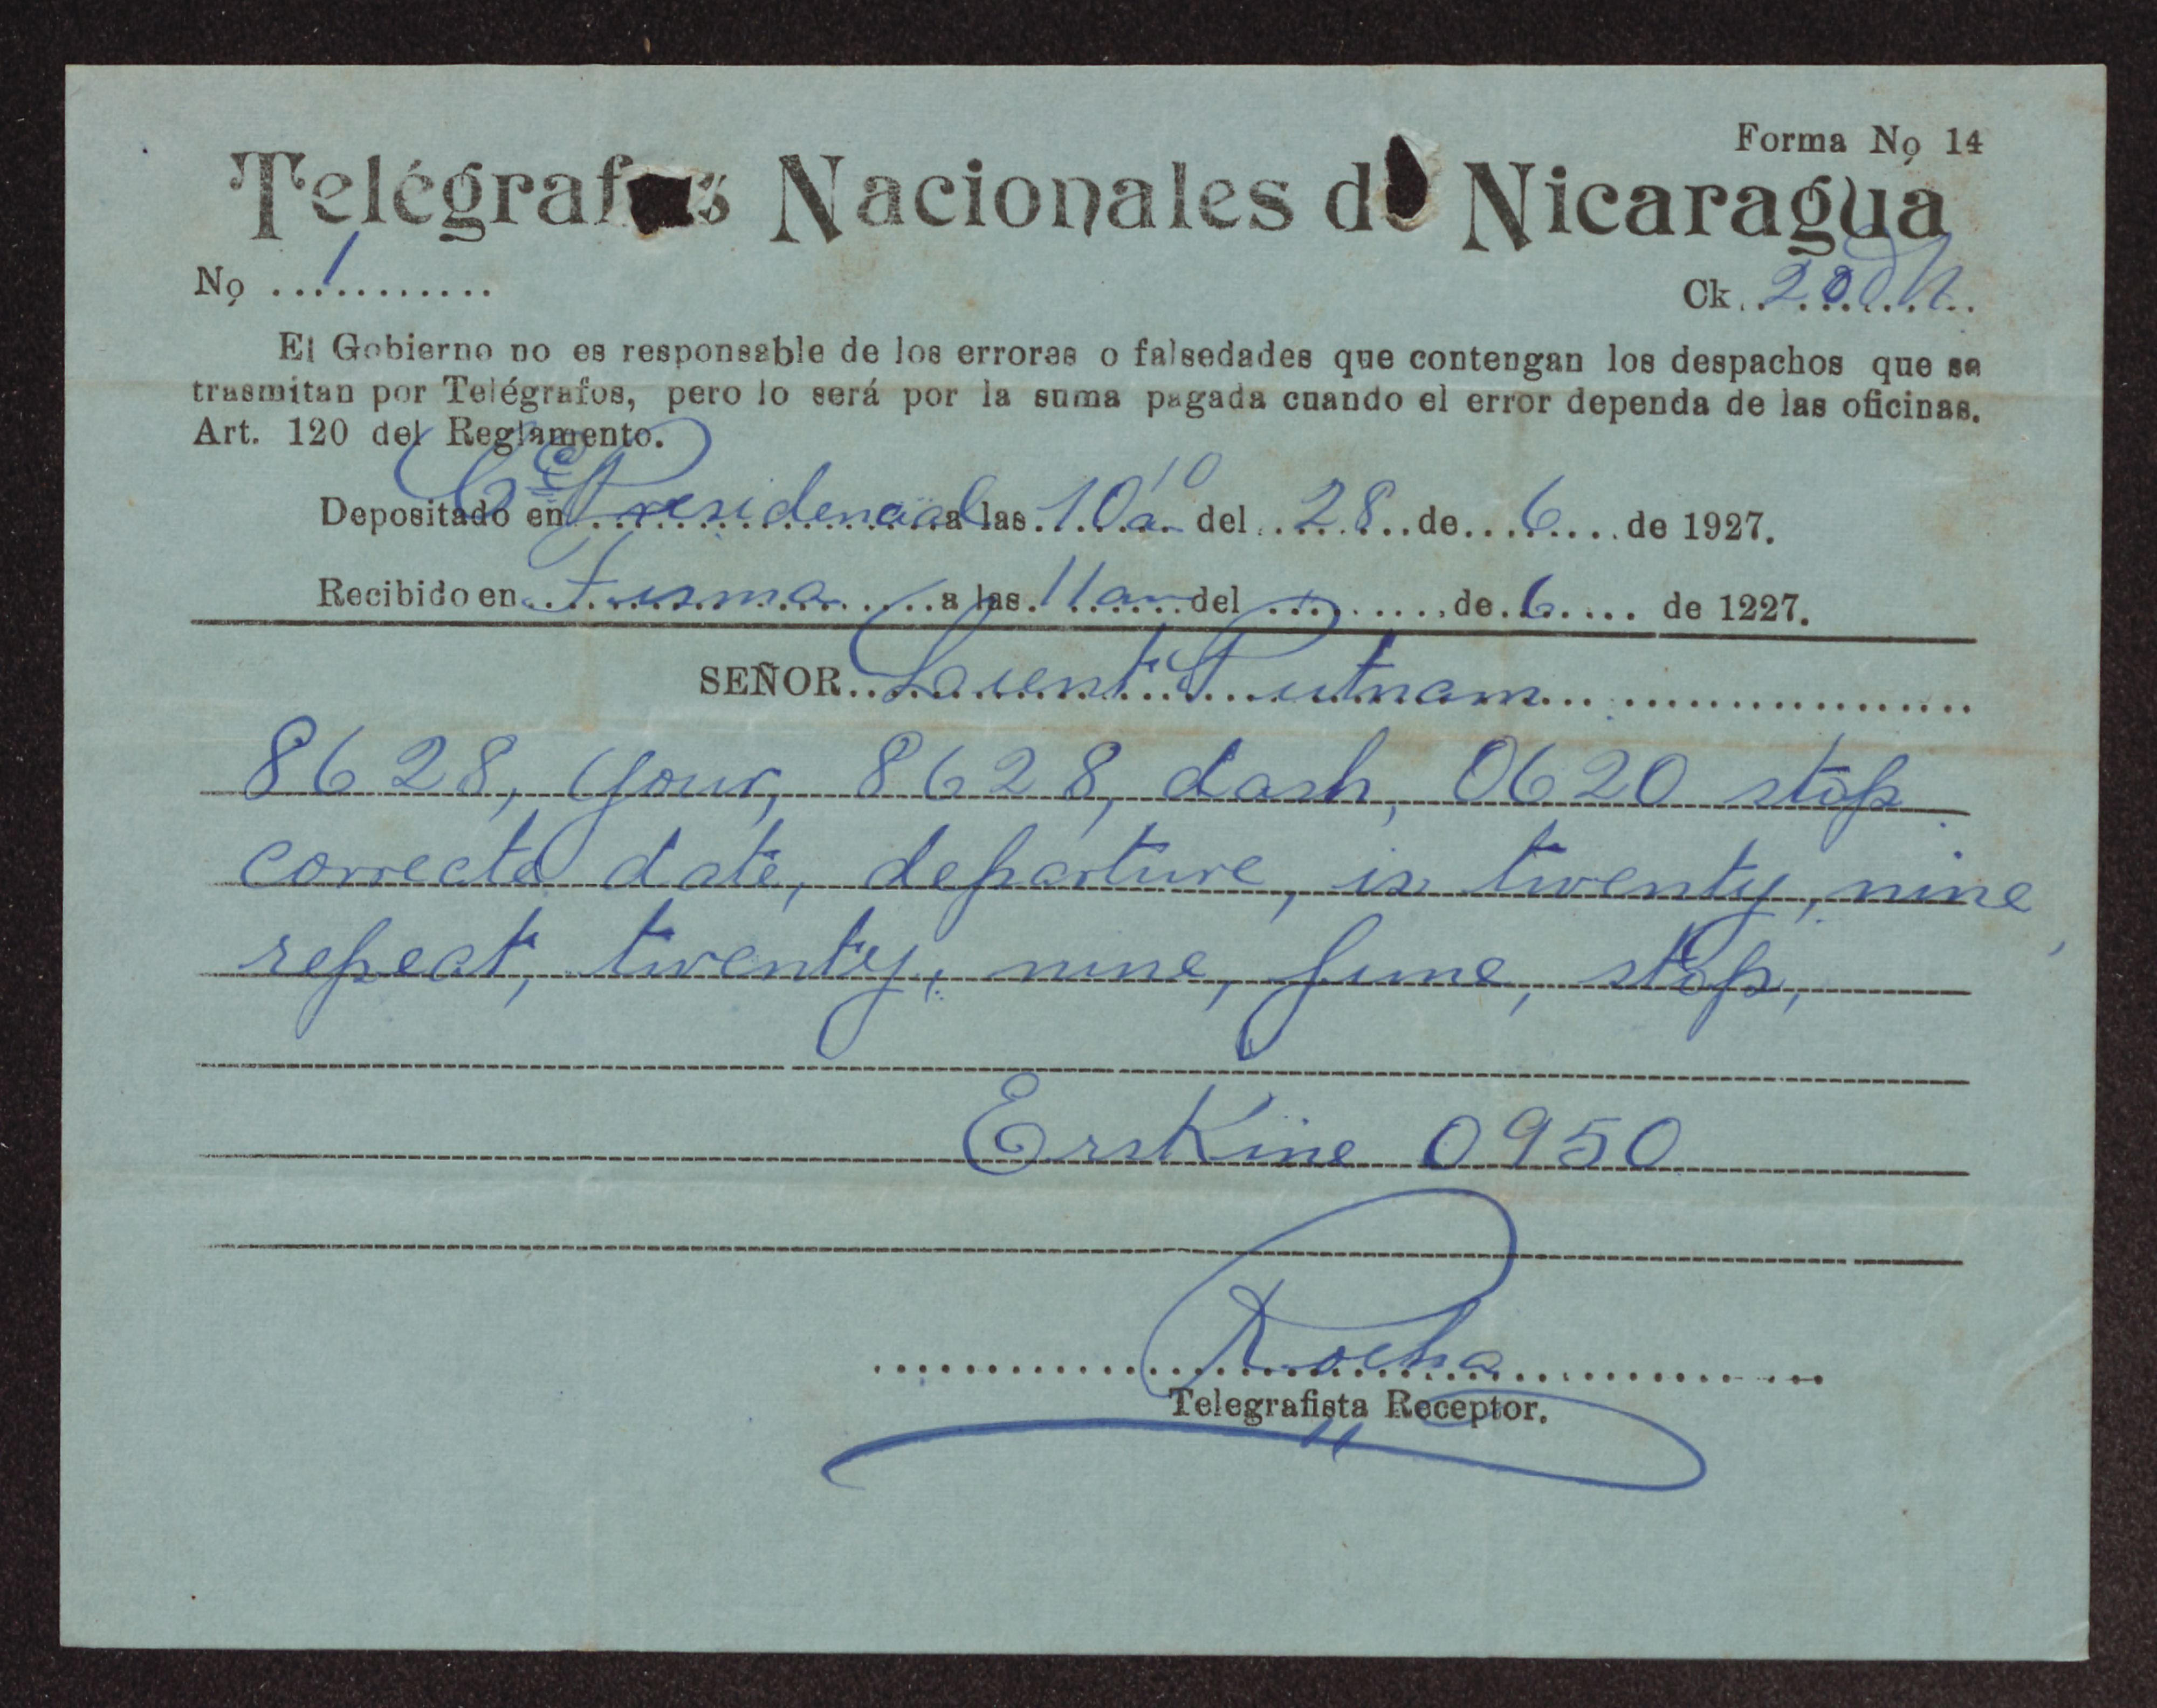 Forma Nọ 14
Telégrafos Nacionales de Nicaragua
Nọ ...1........
Ck. 20 D H
El Gobierno no es responsable de los errores o falsedades que contengan los despachos que se
trasmitan por Telégrafos, pero lo será por la suma pagada cuando el error dependa de las oficinas.
Art. 120 del Reglamento.
Depositado en Presidencial a las 10 10 a del 28 de 6 de 1927.
Recibido en a las 11 am del de 6 de 1227.
SEÑOR Putnam
8628, your, 8628, dash, 0620 stop
correcte date, departure, is twenty, nine,
repeat, twenty, nine, June, stop,
Erskine 0950
Rocha
Telegrafista Receptor.